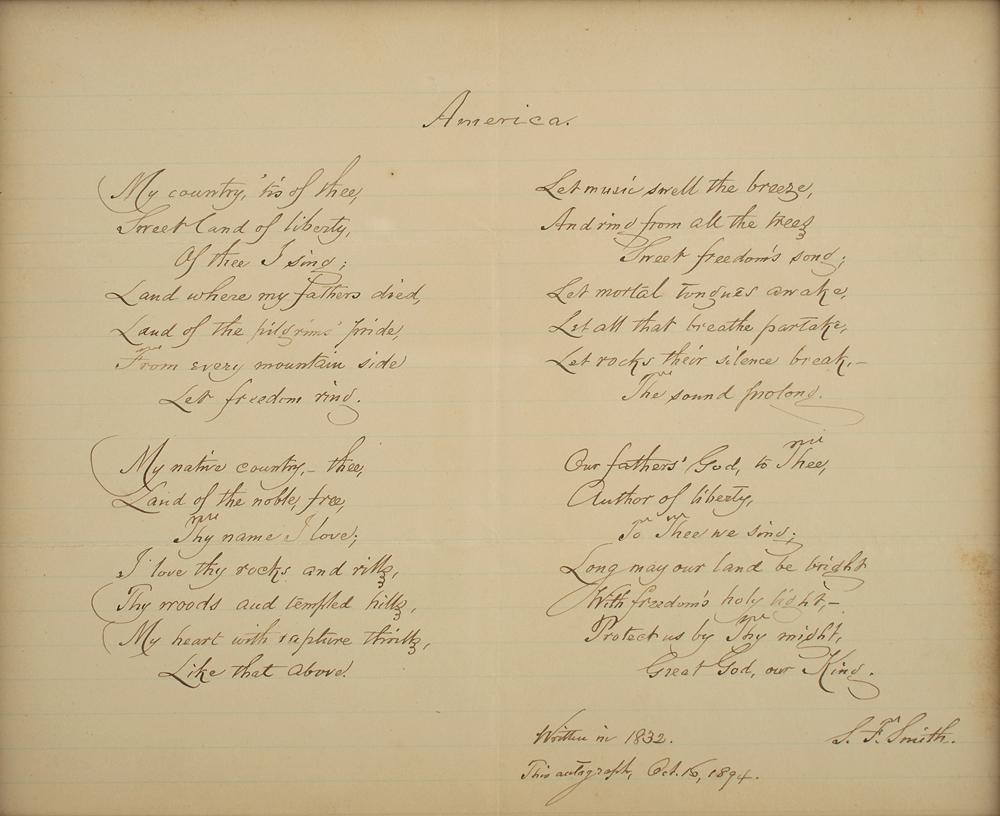 America.
My country, 'tis of thee,
Sweet land of liberty,
Of thee I sing;
Land where my fathers died,
Land of the pilgrims' pride,
From every mountain side
Let freedom ring.
My native country,– thee,
Land of the noble, free,
Thy name I love;
I love thy rocks and rills,
Thy woods and templed hills,
My heart with rapture thrills,
Like that above.
Let music swell the breeze,
And ring from all the trees
Sweet freedom's song;
Let mortal tongues awake,
Let all that breathe partake,
Let rocks their silence break,–
The sound prolong.
Our fathers' God, to Thee,
Author of liberty,
To Thee we sing;
Long may our land be bright
With freedom's holy light,–
Protect us by Thy might,
Great God, our King.
Written in 1832.
S. F. Smith.
This autograph, Oct. 16, 1894.